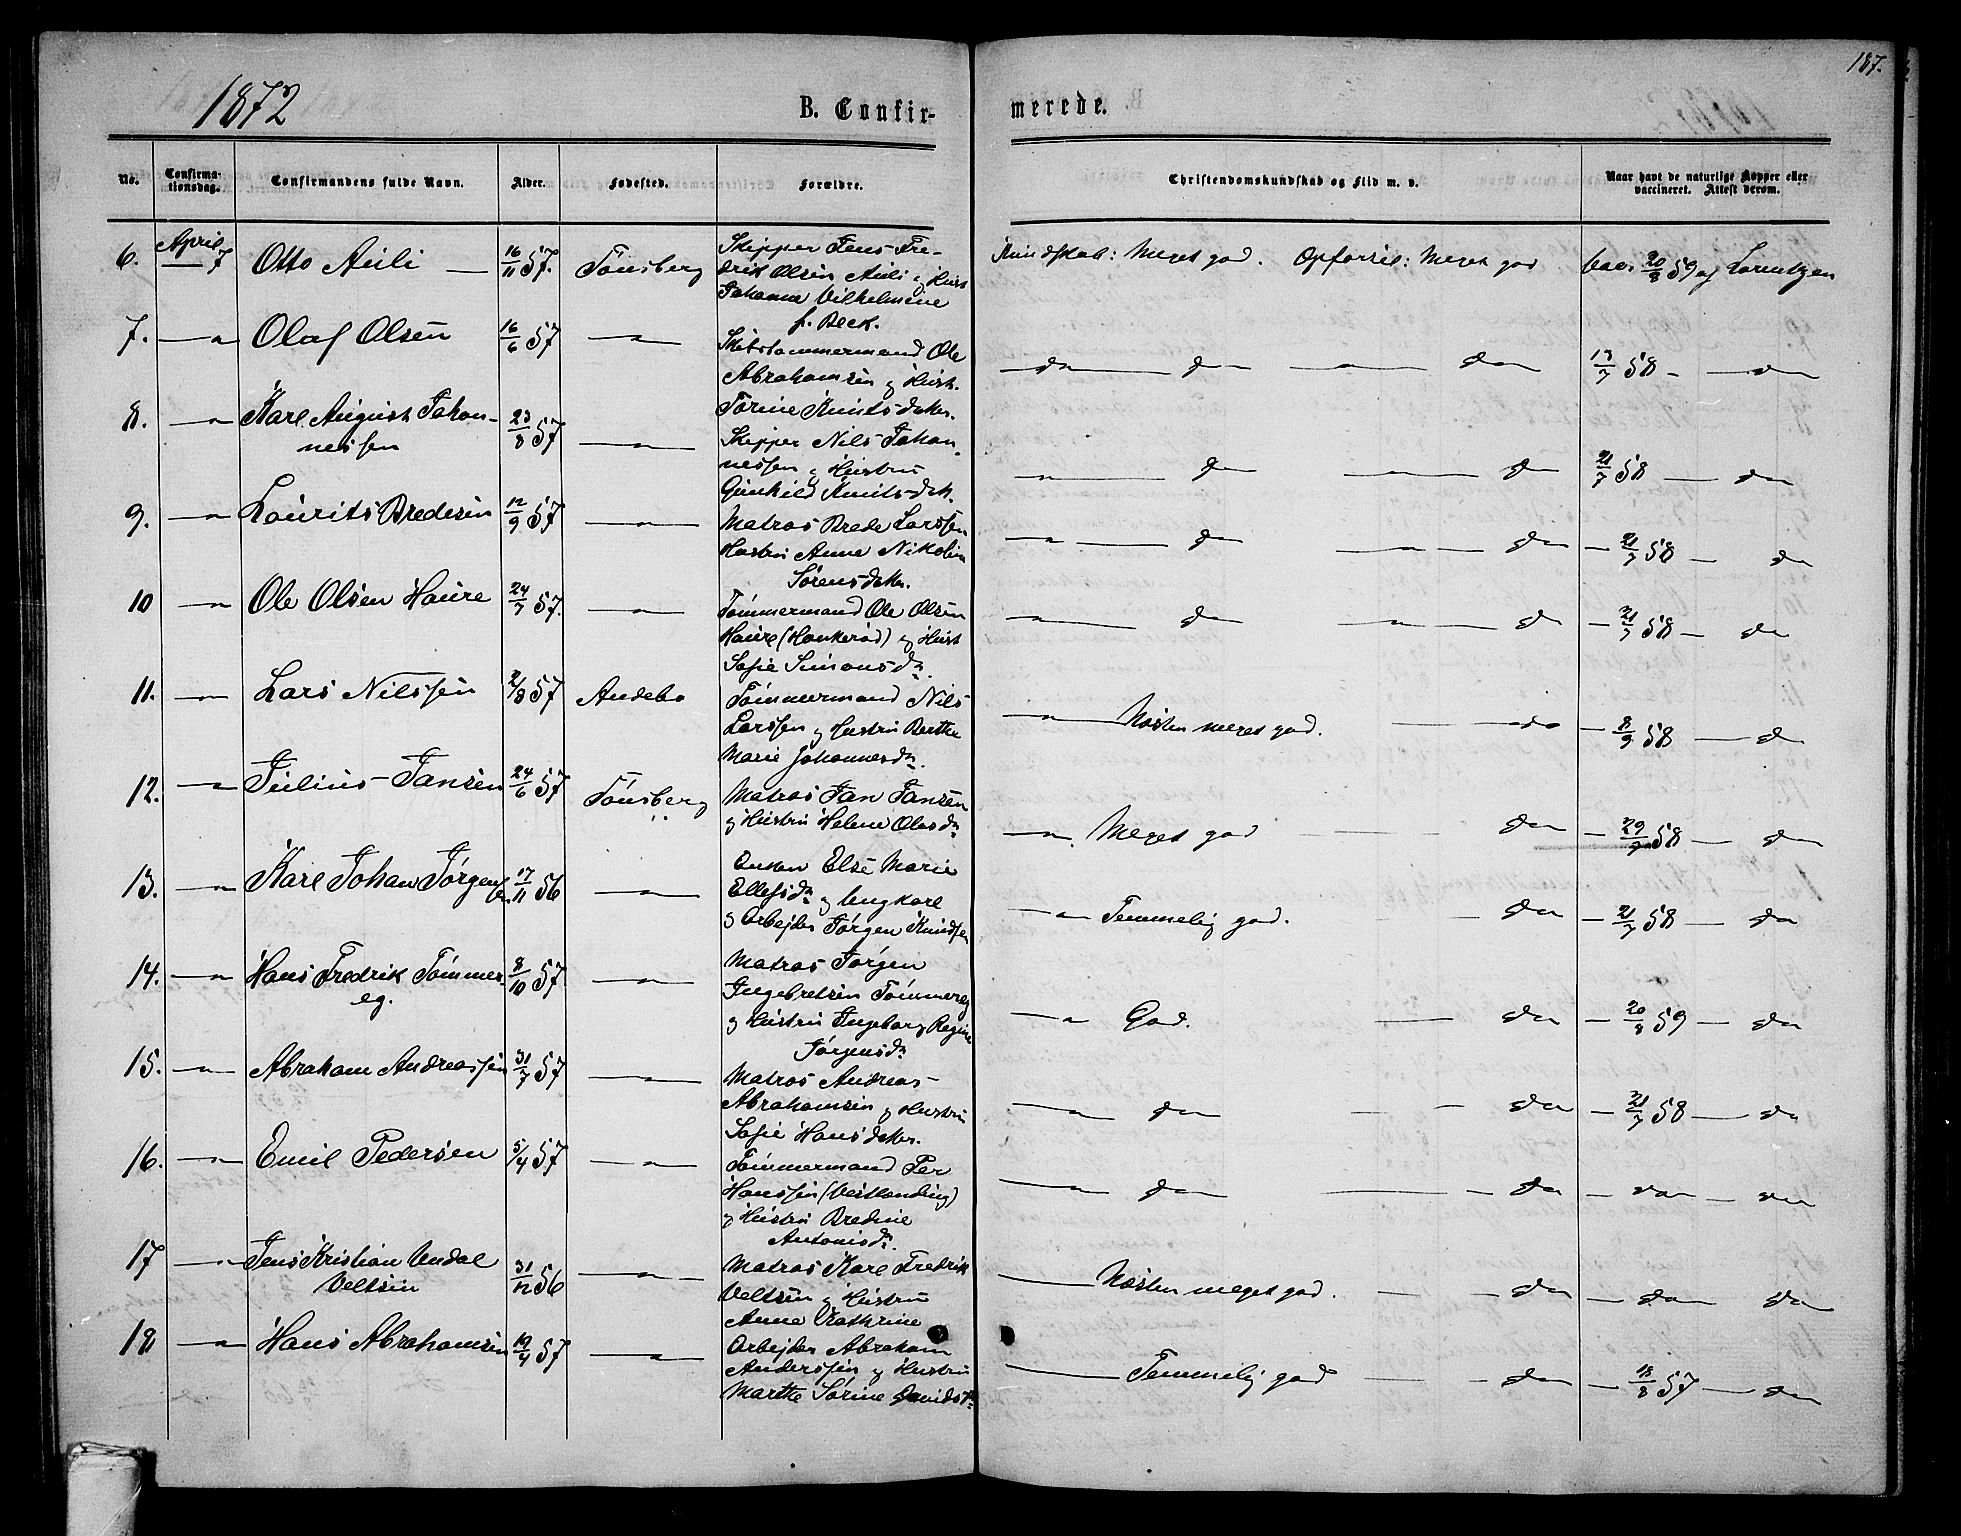 187.
1872
B. Confir- merede.
No. Confirma-tionsdag. Confirmandens fulde Navn. Alder. Fødested. Forældre. Christendomskundskab og Flid m. v. Naar havt de naturlige Kopper eller vaccineret. Attest derom.
6. April 7 Otto Auli — 16/11 57. Tönsberg Skipper Jens Fre- Kundskab: Meget god. Opførsel: Meget god vac. 20/8 59 af Lorentzen
drik Olsen Auli og Hust
Johanne Vilhelmine
f. Beck.
7. — " Olaf Olsen 16/6 57 — " — Skibstømmermand Ole — do — do — do 13/7 58 — do
Abrahamsen og Hust.
Torine Knutsdater.
8. — " Karl August Johan- 23/8 57 — " — Skipper Nils Johan- — " — do — " — do 21/7 58 — do
nessen
nessen og Hustru
Gunhild Knutsdat.
9. — " Laurits Bredesen 12/9 57 — " — Matros Brede Larssen — " — do — " — do — 21/7 58 — do
Hustru Anne Nikoline
Sørensdater.
10 — " Ole Olsen Haure 24/7 57. — " — Tømmermand Ole Olsen — " — do — " — do — 21/7 58 — do
Haure (Haukerød) og Hust
Sofie Simonsdr.
11. — " Lars Nilssen 2/8 57 Andebo Tømmermand Nils — " — Næsten meget god. — do — 8/9 58 — do
Larssen og Hustru Berthe
Marie Johannesdr.
12. — " Julius Jansen 24/6 57 Tönsberg Matros Jan Jansen — " Meget god — do — 29/7 58 — do
og Hustru Helene Olesdr
13. — " Karl Johan Jørgensen 17/11 56 — " — Enken Else Marie — " Temmelig god. — do — 21/7 58 — do
Ellefsdr og Ungkarl
og Arbejder Jørgen Knudsen
14. — " Hans Fredrik Tømmer- 8/10 57 — " — Matros Jørgen — " God. — do — 20/8 59 — do
eg.
Ingebretsen Tømmereg
og Hustru Ingeborg Regine
Jørgensdr
15. — " Abraham Andreassen 31/7 57 — " — Matros Andreas — " — do — do — 21/7 58 — do
Abrahamsen og Hustru
Sofie Hansdater.
16. — " Emil Pedersen 5/4 57 — " — Tømmermand Per — " — do — do — do — do
Hanssen (Vestlending)
og Hustru Bredine
Antonisdr.
17 — " Jens Kristian Undal 31/12 56 — " — Matros Karl Fredrik — Næsten meget god. — do — do — do
Veltsen
Veltsen og Hustru
Anne Kathrine
18 — " Hans Abrahamsen 19/4 57 — " — Arbejder Abraham — Temmelig god — do — 18/8 57 — do
Anderssen og Hustru
Marthe Sørine Davidsdr